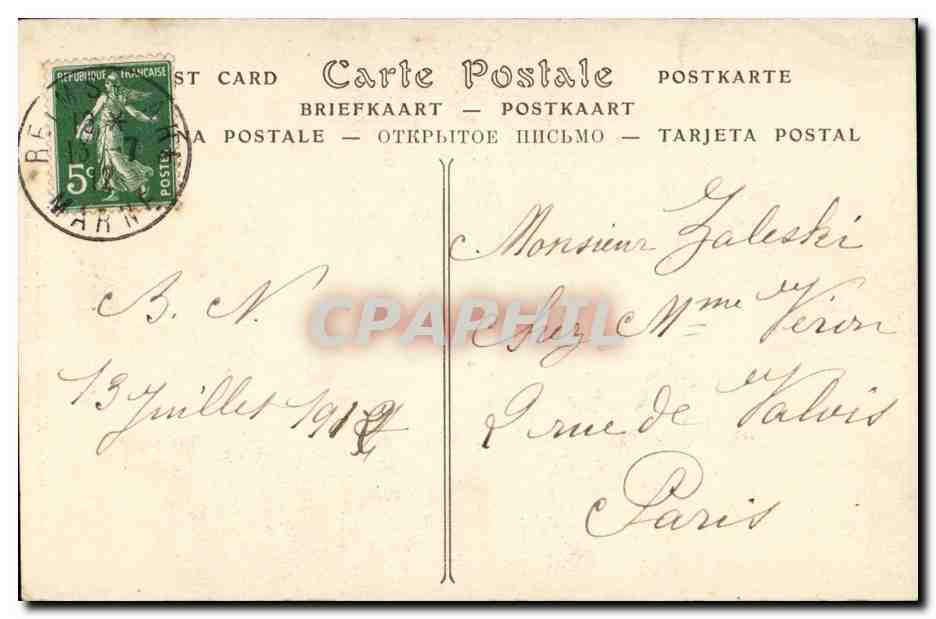 ST CARD Carte Postale POSTKARTE
BRIEFKAART — POSTKAART
A POSTALE — ОТКРЫТОЕ ПИСЬМО — TARJETA POSTAL
REPUBLIQUE FRANÇAISE
5c
POSTES
REIMS
12 *
13 - 7
12
MARNE
B. N.
13 Juillet 1912
Monsieur Zaleski
Chez Mme Véron
2 rue de Valois
Paris
CPAPHIL